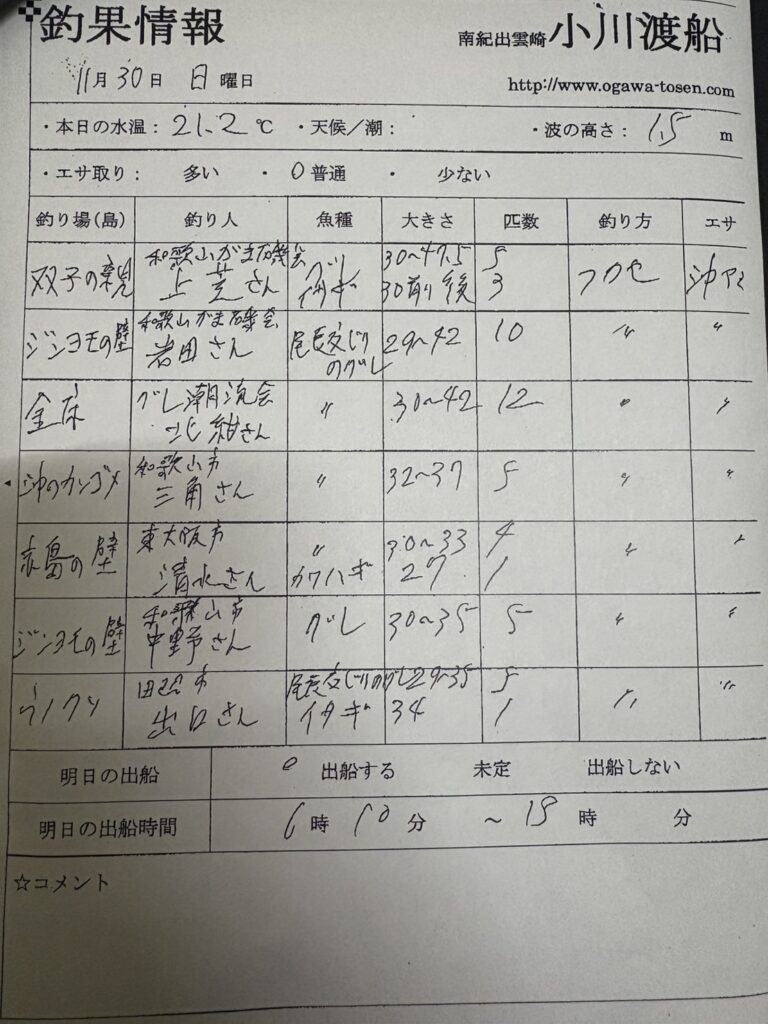 釣果情報
南紀出雲崎 小川渡船
11月30日 日曜日
http://www.ogawa-tosen.com
・本日の水温： 21.2 ℃ ・天候／潮： ・波の高さ： 1.5 m
・エサ取り： 多い ・ 0 普通 ・ 少ない
釣り場(島) 釣り人 魚種 大きさ 匹数 釣り方 エサ
和歌山がま磯会 グレ 30～47.5 5
双子の親 上芝さん イサギ 30前後 3 フカセ 沖アミ
和歌山がま磯会
ジンヨモの壁 岩田さん 尾長交じりのグレ 29～42 10 〃 〃
グレ潮流会
金床 北紺さん 〃 30～42 12 〃 〃
和歌山市
沖のカンゴメ 三角さん 〃 32～37 5 〃 〃
東大阪市 〃 30～33 4
赤島の壁 清水さん カワハギ 27 1 〃 〃
和歌山市
ジンヨモの壁 中野さん グレ 30～35 5 〃 〃
田辺市 尾長交じりのグレ 29～35 5
出口さん イサギ 34 1 〃 〃
明日の出船 0 出船する 未定 出船しない
明日の出船時間 6時10分 ～15時 分
☆コメント